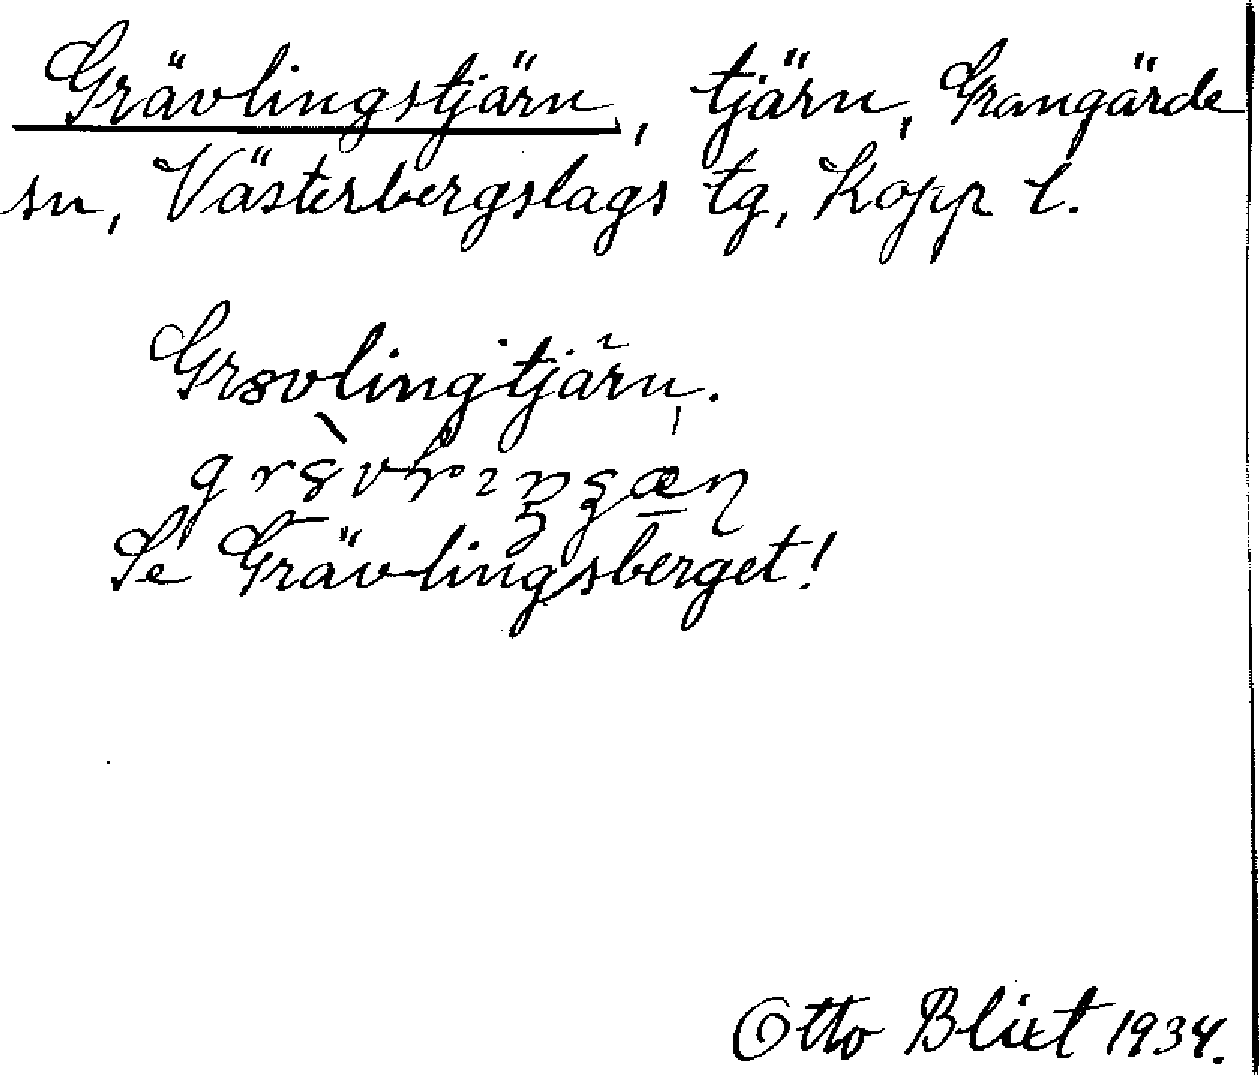 Grävlingstjärn, tjärn, Grangärde
sn, Västerbergslags tg, Kopp l.
Grsvlingtjärn.
Se Grävlingsberget!
Otto Blixt 1934.